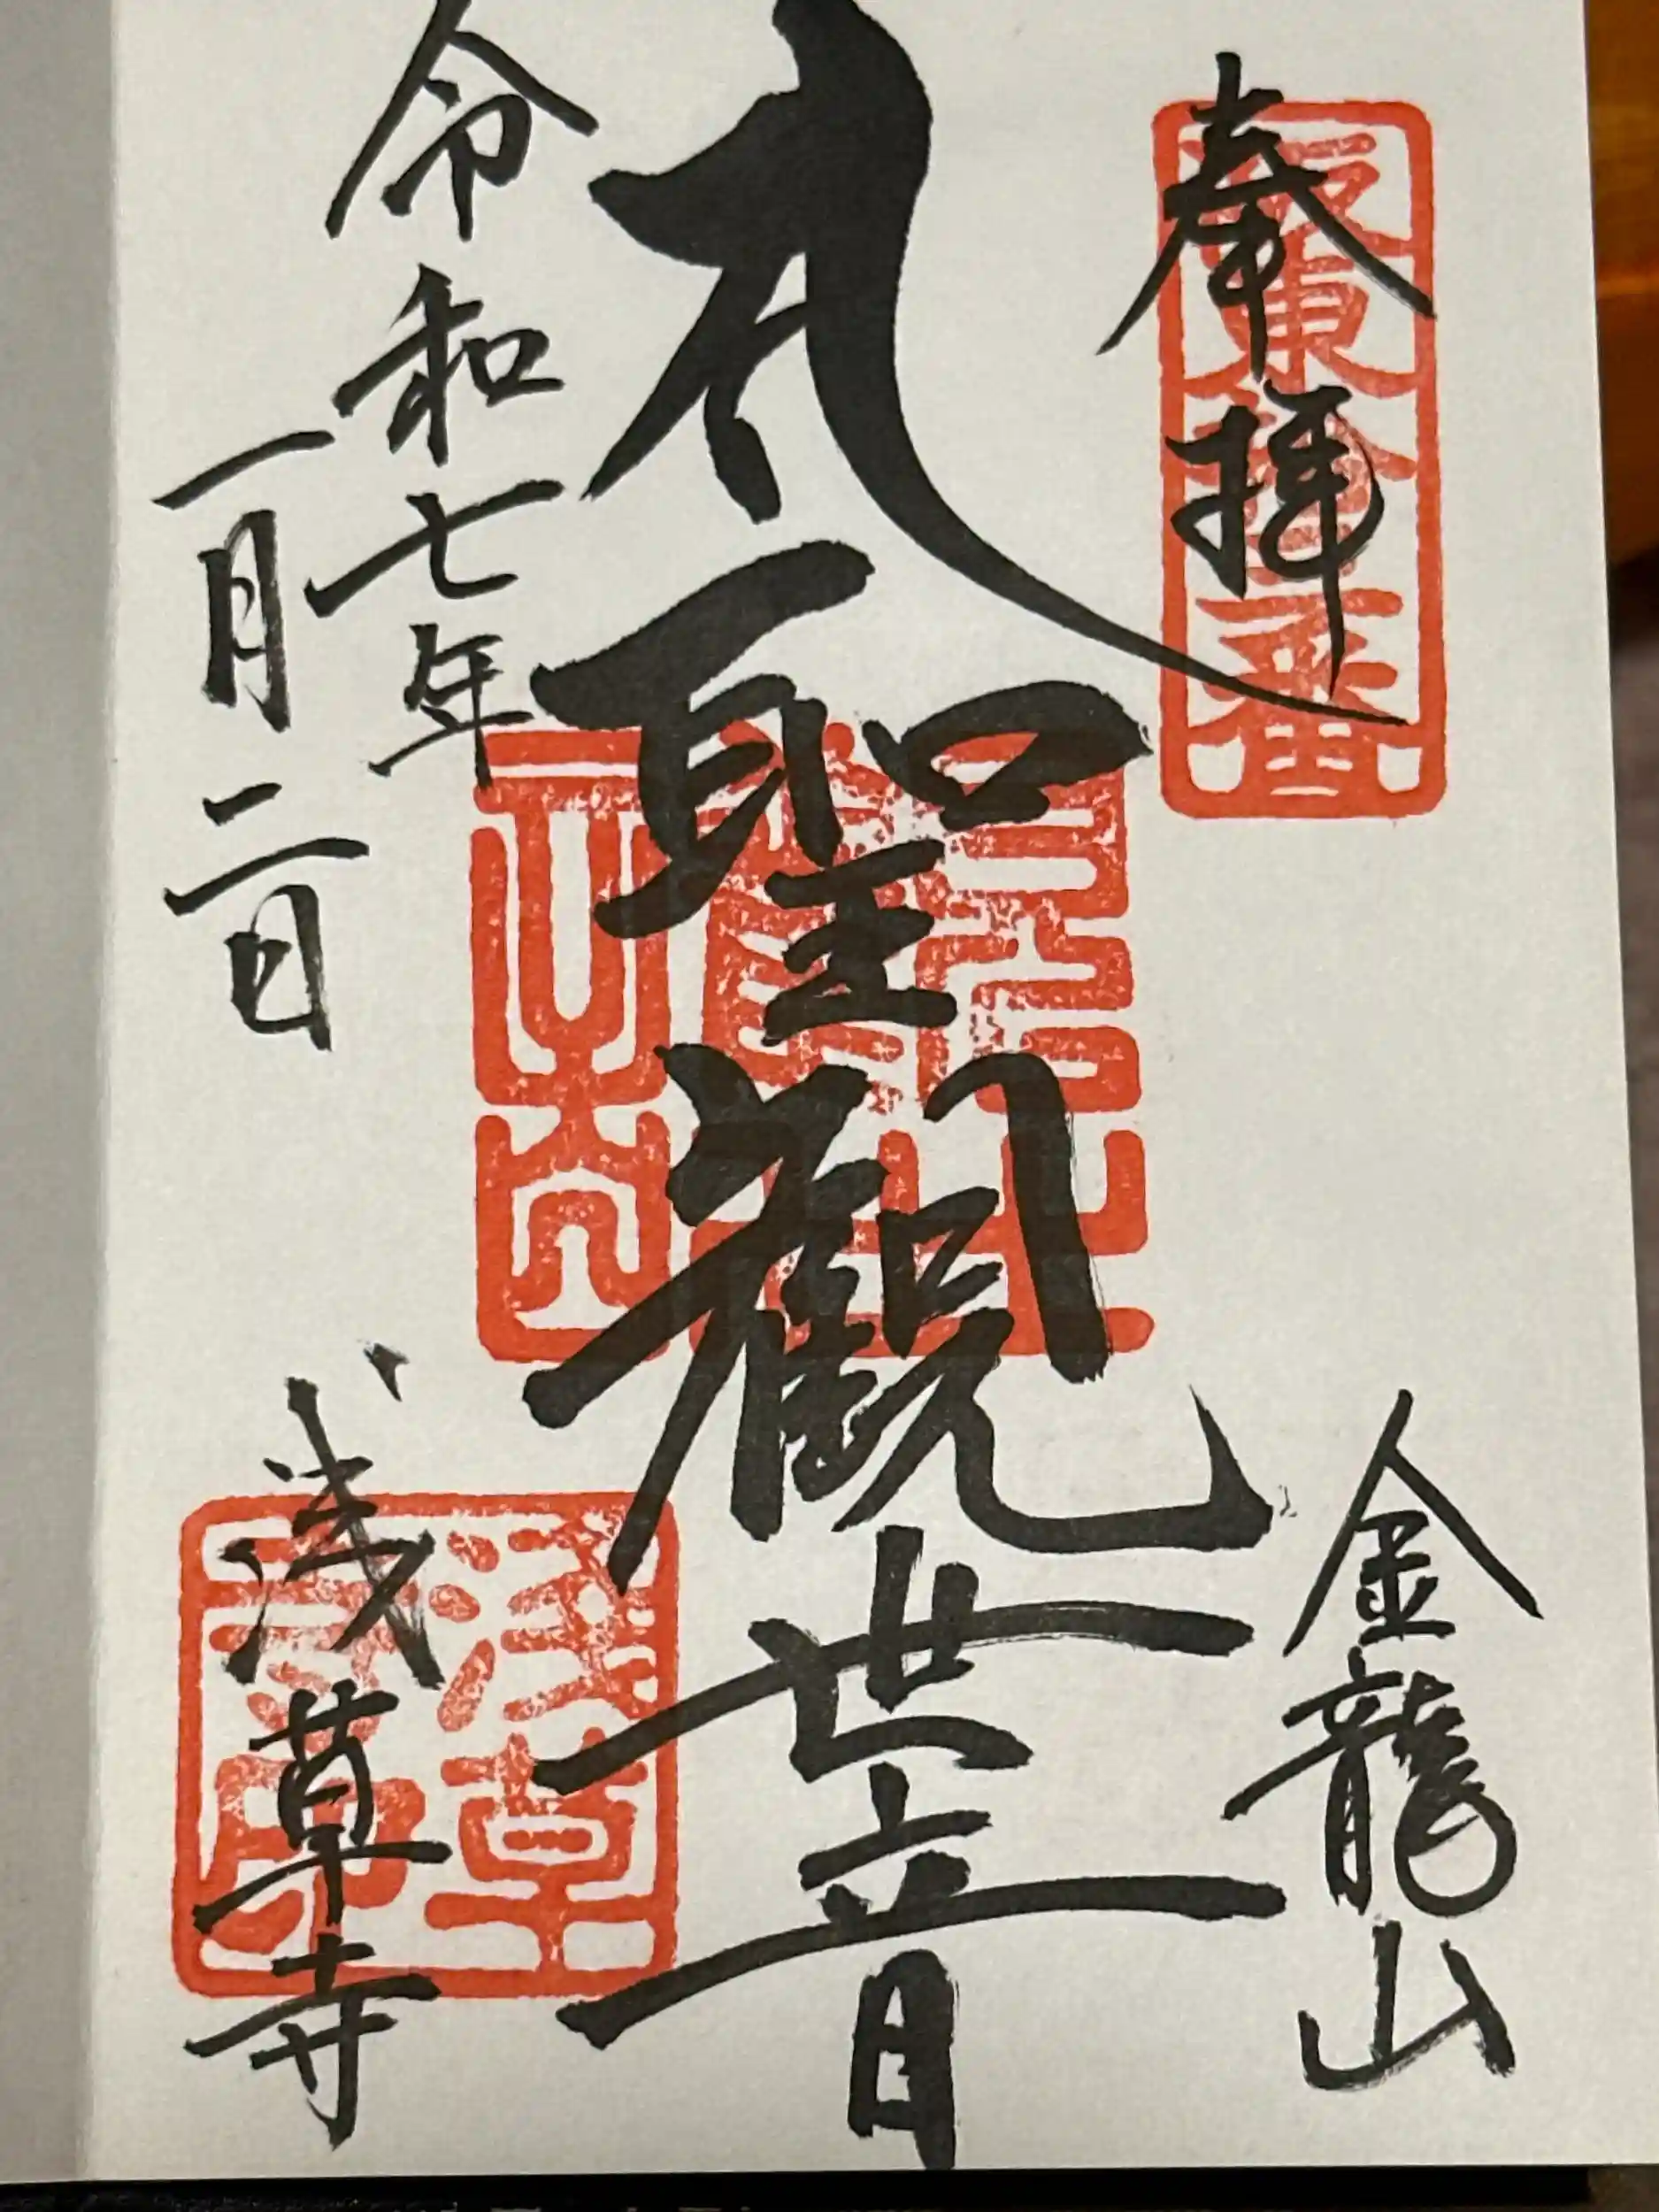 奉拝
坂東拾三番
金龍山
聖觀世音
令和七年
一月二日
浅草寺